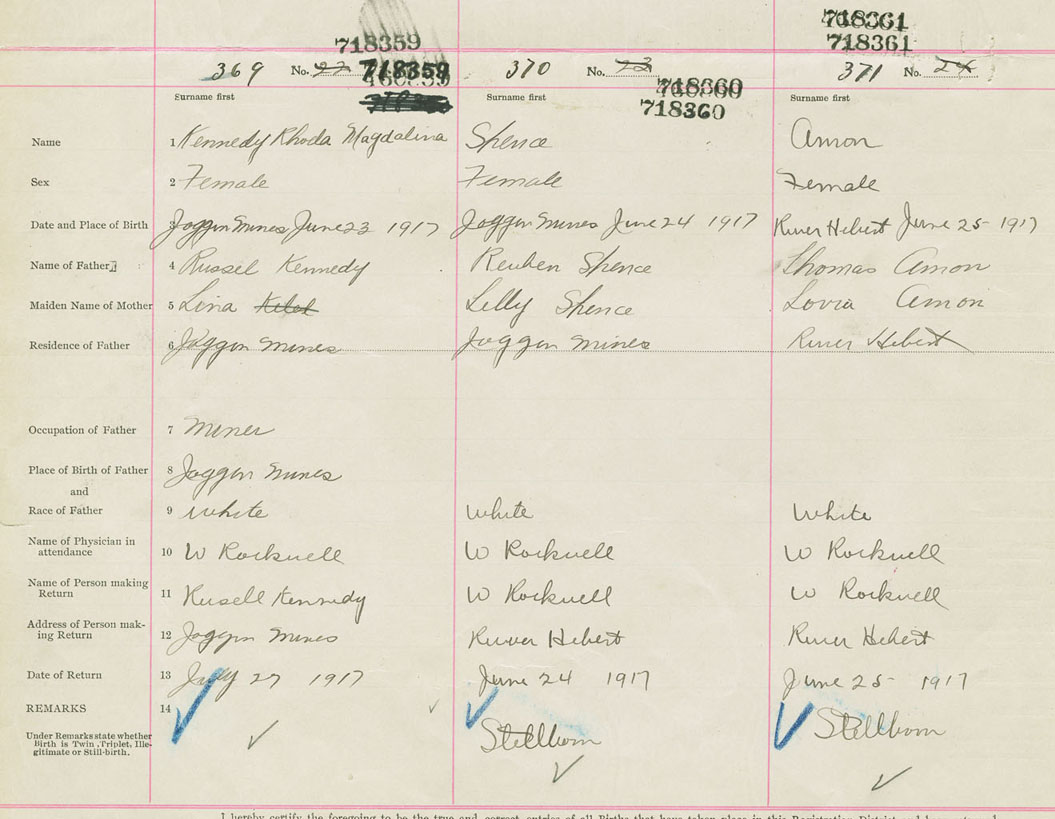 718359 718361
718361
369 No. 22 718359 370 No. 23 718360 371 No. 24
718360
Surname first Surname first Surname first
Name 1 Kennedy Rhoda Magdalina Spence Amon
Sex 2 Female Female Female
Date and Place of Birth 3 Joggin Mines June 23 1917 Joggin Mines June 24 1917 River Hebert June 25 1917
Name of Father 4 Russel Kennedy Reuben Spence Thomas Amon
Maiden Name of Mother 5 Lina Lilly Spence Lovia Amon
Residence of Father 6 Joggin Mines Joggin Mines River Hebert
Occupation of Father 7 Miner
Place of Birth of Father 8 Joggin Mines
and
Race of Father 9 White White White
Name of Physician in
attendance 10 W Rockwell W Rockwell W Rockwell
Name of Person making
Return 11 Rusell Kennedy W Rockwell W Rockwell
Address of Person mak-
ing Return 12 Joggin Mines River Hebert River Hebert
Date of Return 13 July 27 1917 June 24 1917 June 25 1917
REMARKS 14
Under Remarks state whether
Birth is Twin, Triplet, Ille-
gitimate or Still-birth. Stillborn Stillborn
I hereby certify the foregoing to be the true and correct entries of all Births that have taken place in this Registration District